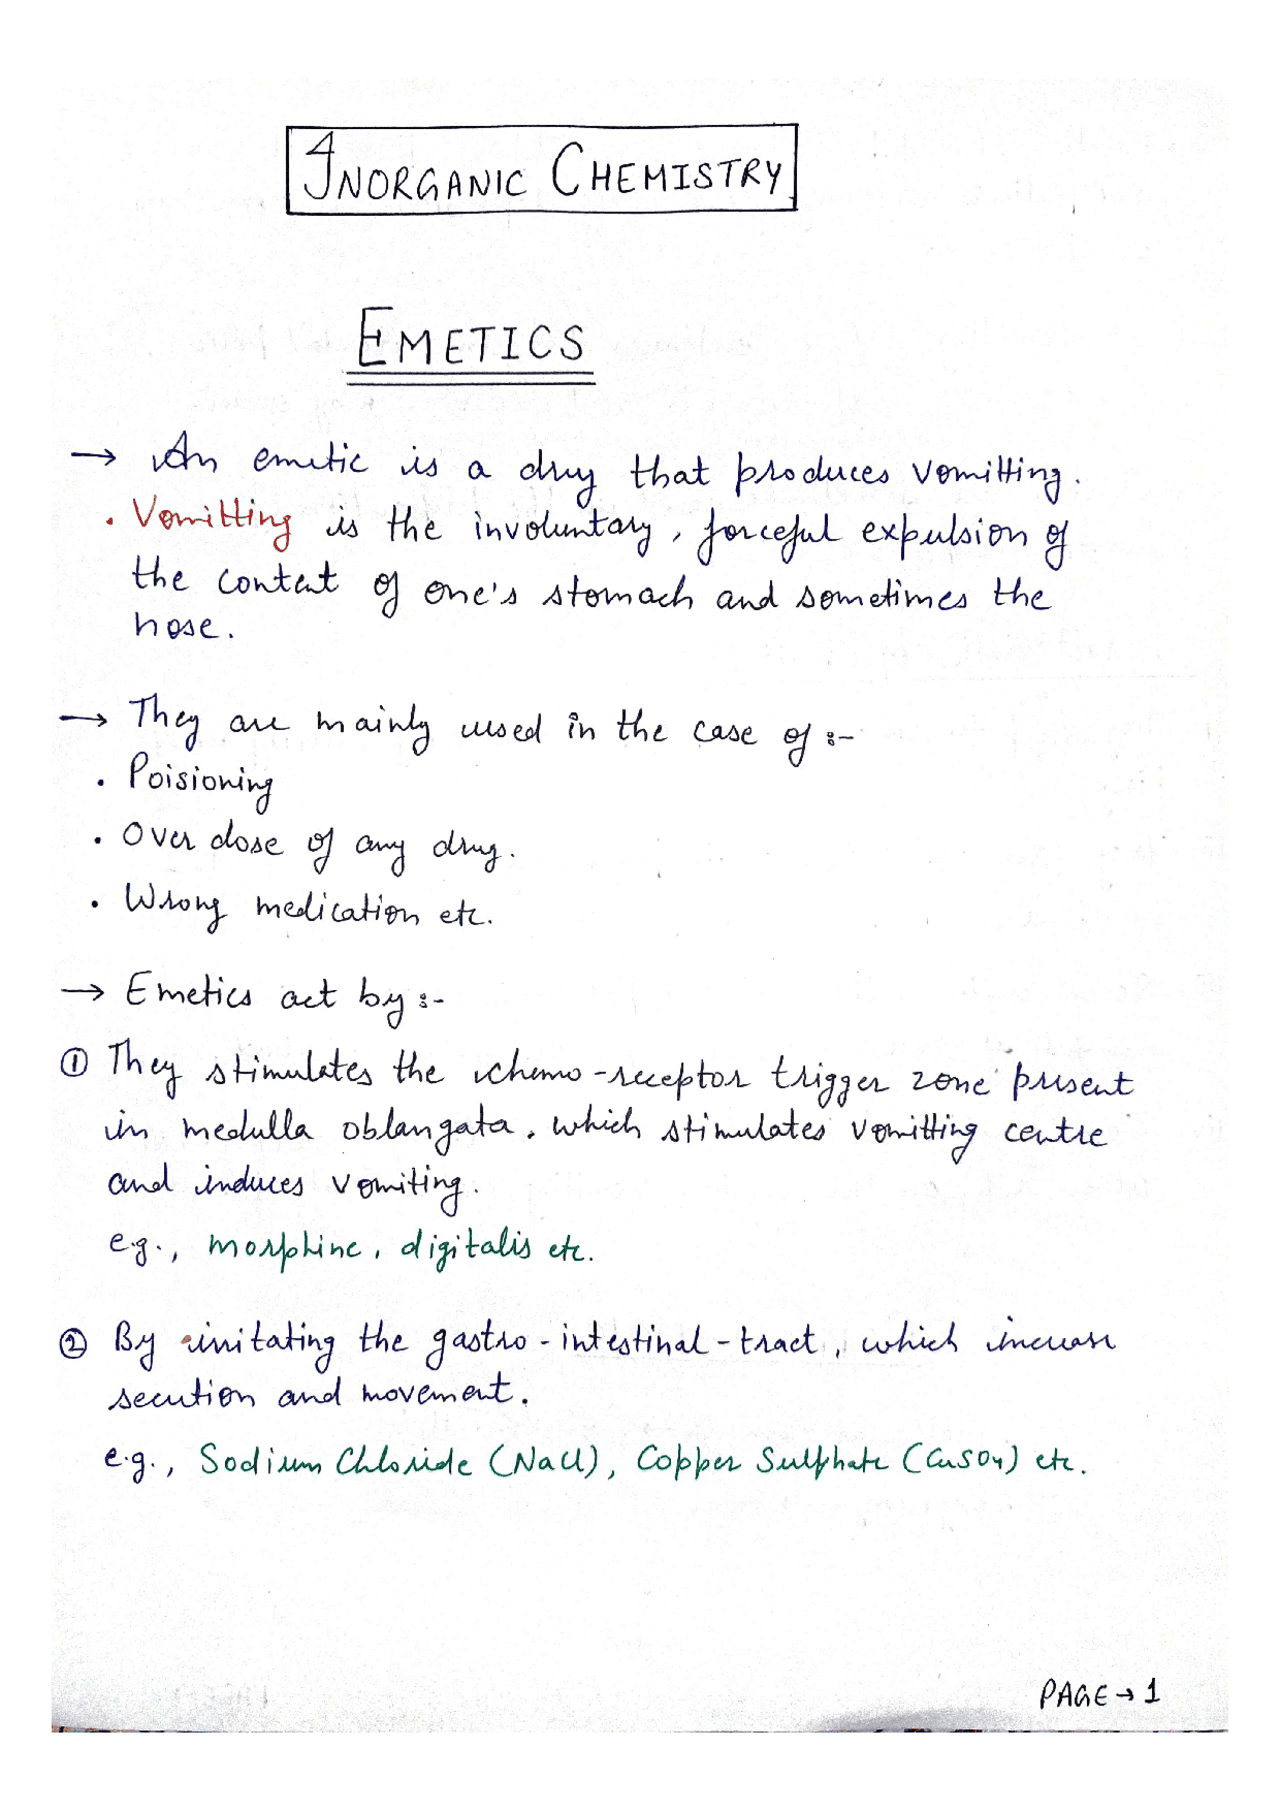 INORGANIC CHEMISTRY
EMETICS
→ An emetic is a drug that produces vomitting.
• Vomitting is the involuntary, forceful expulsion of
the content of one's stomach and sometimes the
nose.
→ They are mainly used in the case of :-
• Poisioning
• Over dose of any drug.
• Wrong medication etc.
→ Emetics act by :-
① They stimulates the chemo-receptor trigger zone present
in medulla oblangata, which stimulates vomitting centre
and induces vomiting.
e.g., morphine, digitalis etc.
② By irritating the gastro-intestinal-tract, which increase
secretion and movement.
e.g., Sodium Chloride (NaCl), Copper Sulphate (CuSO4) etc.
PAGE → 1